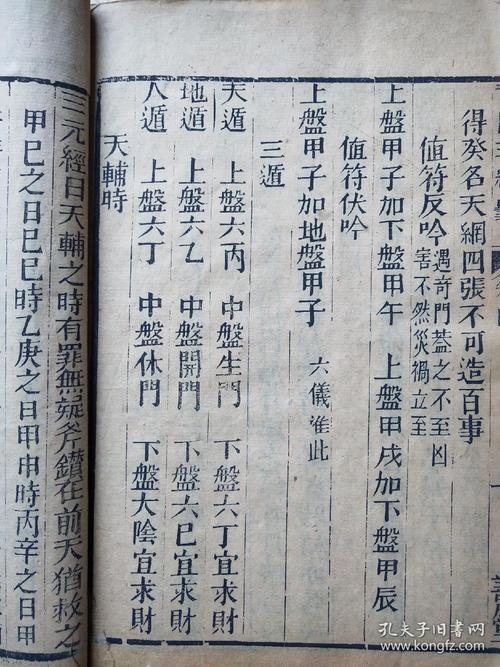 得癸名天網四張不可造百事
值符反吟 遇奇門蓋之不至凶
害不然災禍立至
上盤甲子加下盤甲午 上盤甲戌加下盤甲辰
值符伏吟
上盤甲子加地盤甲子 六儀準此
三遁
天遁 上盤六丙 中盤生門 下盤六丁宜求財
地遁 上盤六乙 中盤開門 下盤六巳宜求財
人遁 上盤六丁 中盤休門 下盤大陰宜求財
天輔時
三元經曰天輔之時有罪無疑斧鑽在前天猶救之
甲巳之日巳巳時乙庚之日甲申時丙辛之日甲
孔夫子旧书网
www.kongfz.com